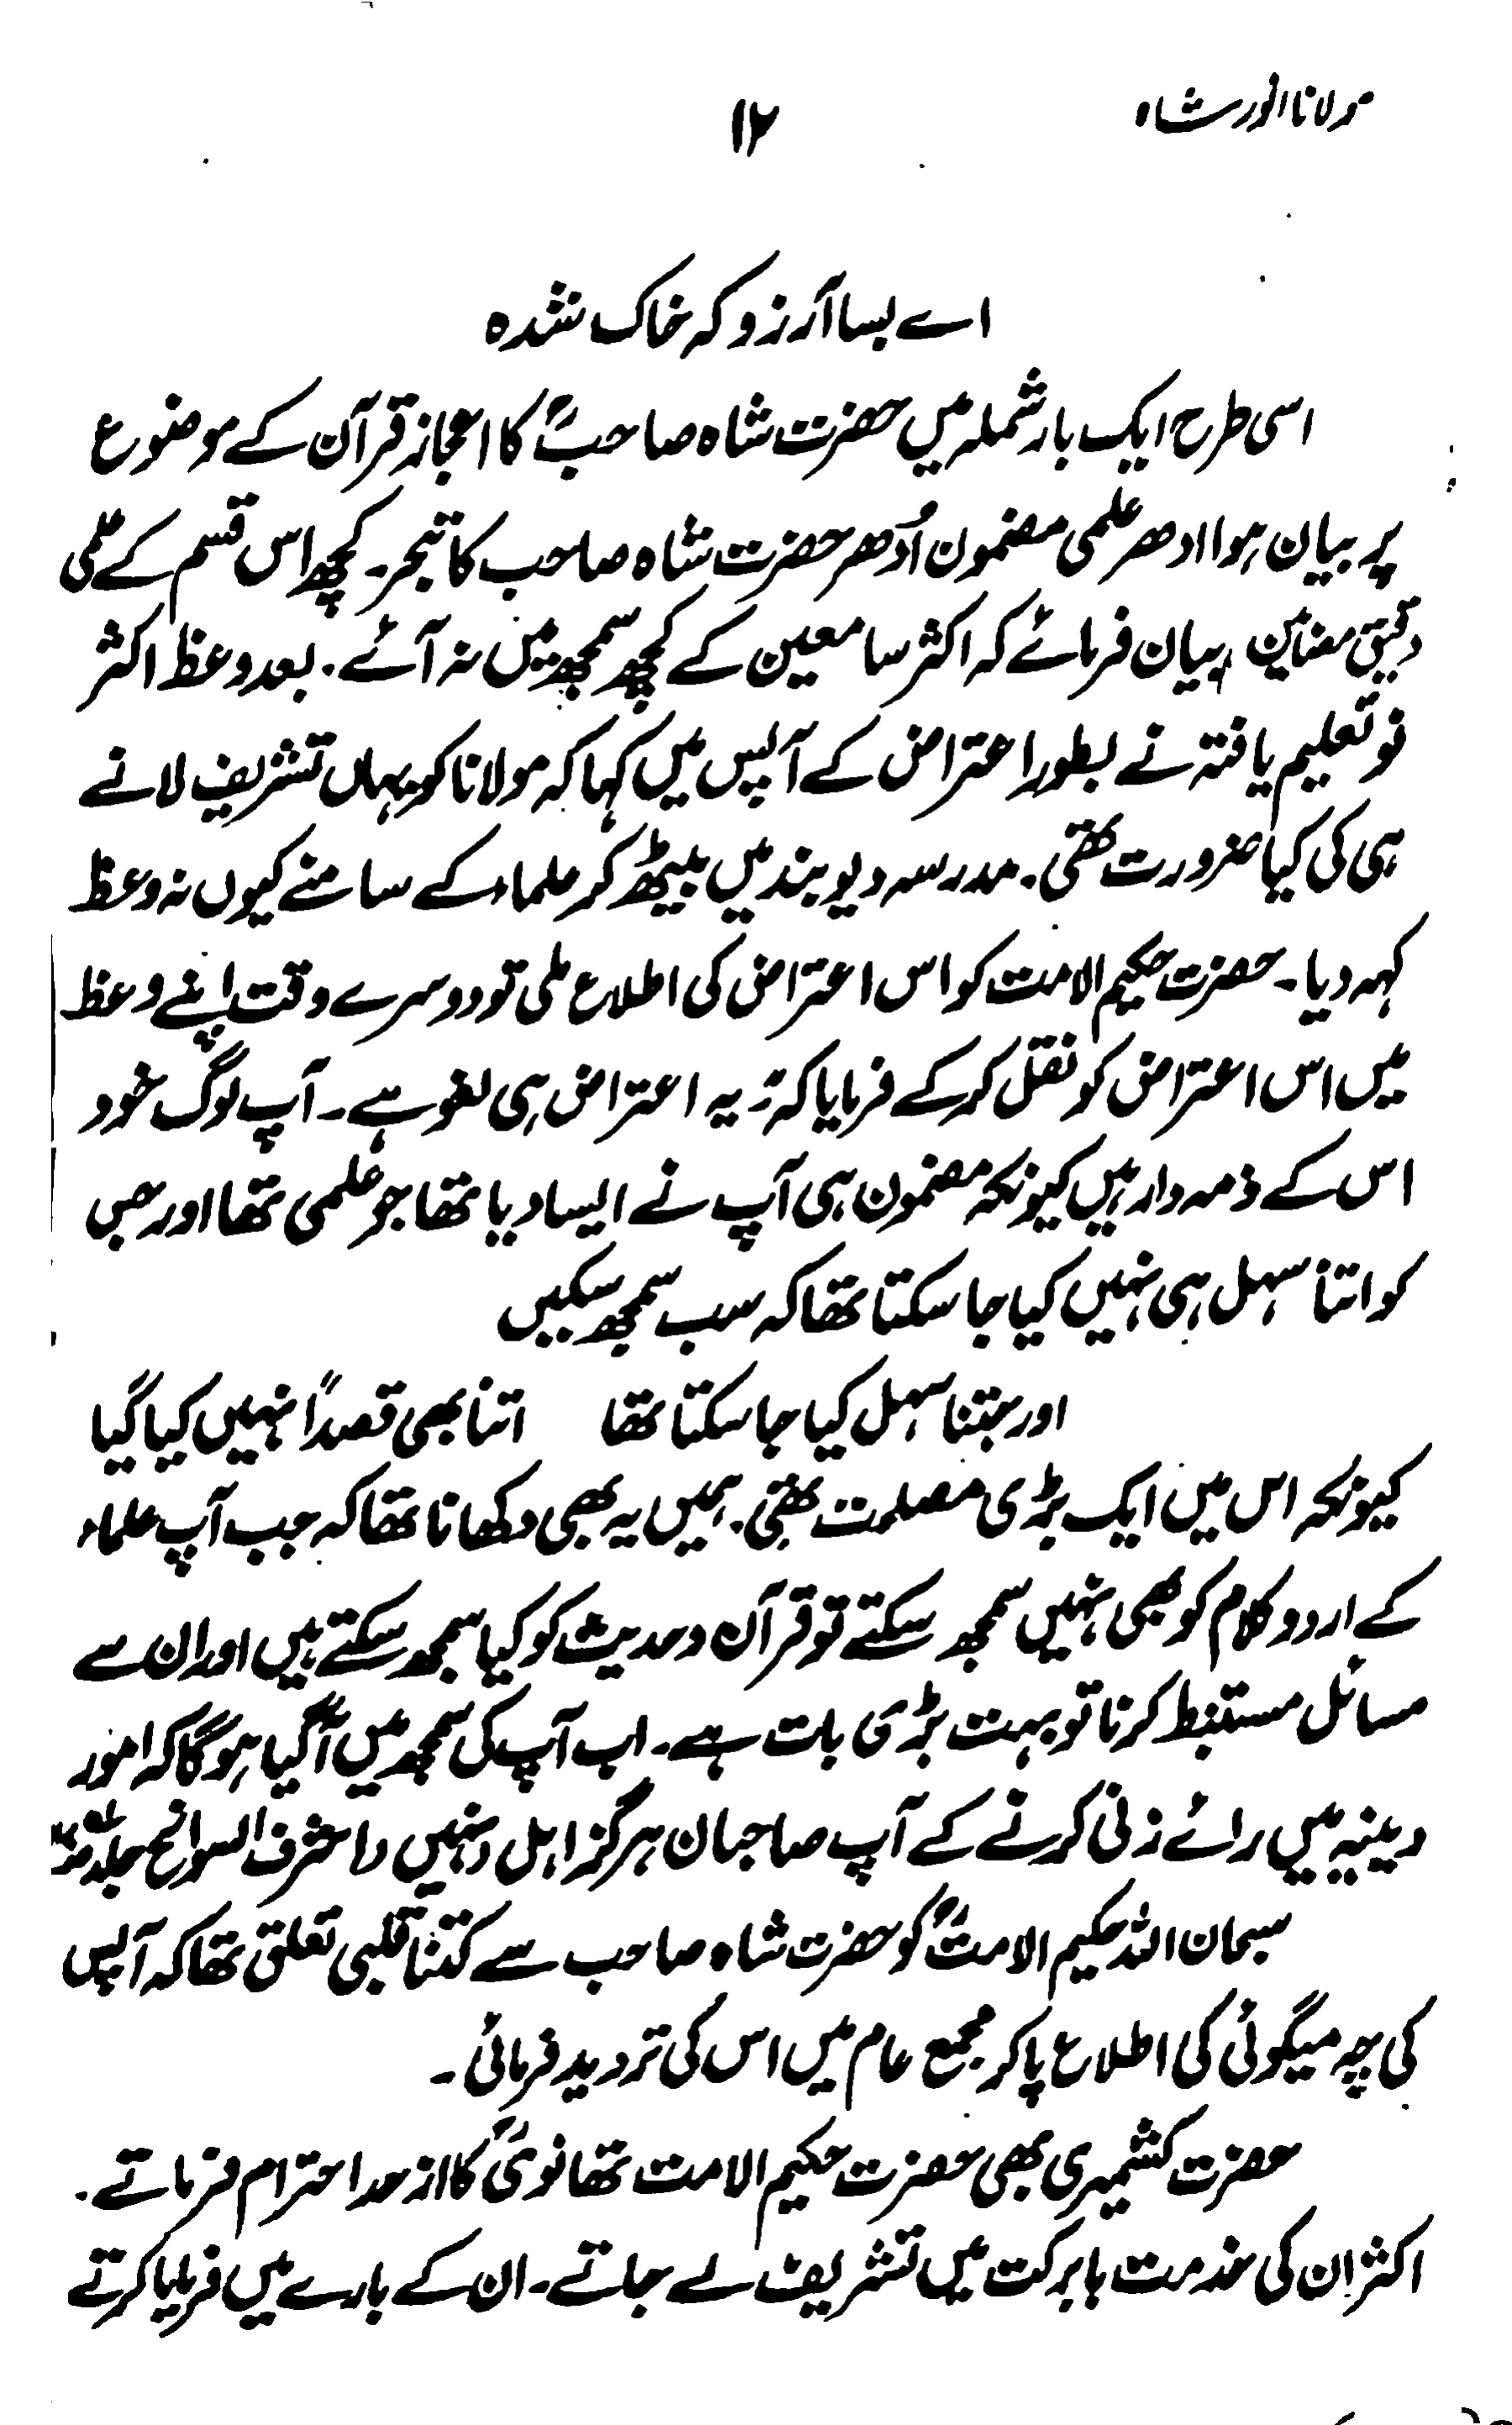 مولانا انور شاہ
۱۲
اے بسا آرزو کہ خاک شدہ
اسی طرح ایک بار شملہ میں حضرت شاہ صاحبؒ کا اعجاز قرآن کے موضوع
پر بیان ہوا ادھر علمی مضمون اُدھر حضرت شاہ صاحب کا تبحر۔ کچھ اس قسم کے علمی
دقیق مضامین بیان فرمائے کہ اکثر سامعین کے کچھ سمجھ میں نہ آئے۔ بعد وعظ اکثر
نو تعلیم یافتہ نے بطور اعتراض کے آپس میں کہا کہ مولانا کو یہاں تشریف لانے
ہی کی کیا ضرورت تھی۔ مدرسہ دیوبند میں بیٹھ کر علماء کے سامنے کیوں نہ وعظ
کہہ دیا۔ حضرت حکیم الامت کو اس اعتراض کی اطلاع ملی تو دوسرے وقت اپنے وعظ
میں اس اعتراض کو نقل کر کے فرمایا کہ یہ اعتراض ہی لغو ہے۔ آپ لوگ خود
اس کے ذمہ دار ہیں کیونکہ مضمون ہی آپ نے ایسا دیا تھا جو علمی تھا اور جس
کو اتنا سہل ہی نہیں کیا جا سکتا تھا کہ سب سمجھ سکیں
اور جتنا سہل کیا جا سکتا تھا اتنا بھی قصداً نہیں کیا گیا
کیونکہ اس میں ایک بڑی مصلحت تھی۔ ہمیں یہ بھی دکھانا تھا کہ جب آپ علماء
کے اردو کلام کو بھی نہیں سمجھ سکتے تو قرآن و حدیث کو کیا سمجھ سکتے ہیں اور ان سے
مسائل مستنبط کرنا تو بہت بڑی بات ہے۔ اب آپ کی سمجھ میں آگیا ہوگا کہ امور
دینیہ میں رائے زنی کرنے کے آپ صاحبان ہرگز اہل نہیں (اشرف السوانح جلد
سبحان اللہ حکیم الامتؒ کو حضرت شاہ صاحب سے کتنا قلبی تعلق تھا کہ آپس
کی چہ میگوئی کی اطلاع پا کر مجمع عام میں اس کی تردید فرمائی۔
حضرت کشمیری بھی حضرت حکیم الامت تھانویؒ کا از حد احترام فرماتے۔
اکثر ان کی خدمت بابرکت میں تشریف لے جاتے۔ ان کے بارے میں فرمایا کرتے